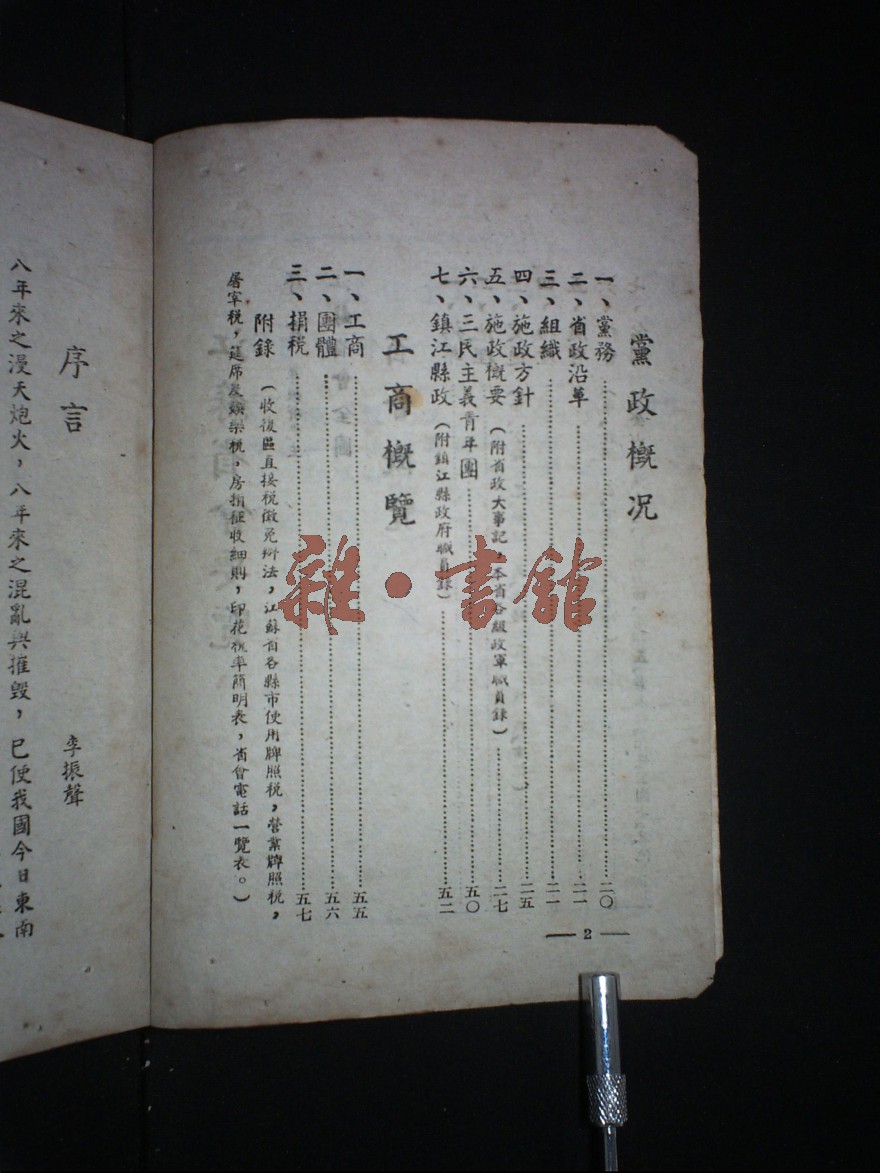 黨政概况
一、黨務 二〇
二、省政沿革 二一
三、組織 二一
四、施政方針 二五
五、施政概要（附省政大事記，本省各級政軍職員錄） 二七
六、三民主義青年團 五〇
七、鎮江縣政（附鎮江縣政府職員錄） 五二
工商概覽
一、工商 五五
二、團體 五六
三、捐税 五七
附錄（收復區直接税徵免辦法，江蘇省各縣市使用牌照税，營業牌照税，
屠宰税，筵席及娛樂税，房捐征收細則，印花税率簡明表，省會電話一覽表。）
2
序言
李振聲
八年來之漫天炮火，八年來之混亂與摧毀，已使我國今日東南
雜·書舘